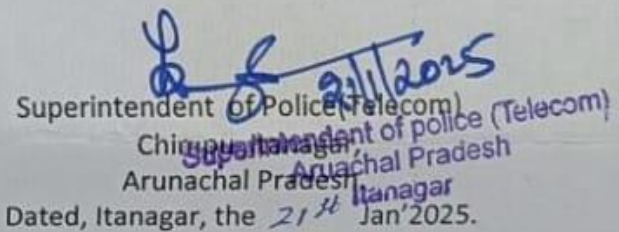 21/1/2025
Superintendent of Police(Telecom)
Chimpu, Itanagar,
Arunachal Pradesh.
Superintendent of police (Telecom)
Aruachal Pradesh
Itanagar
Dated, Itanagar, the 21st Jan'2025.